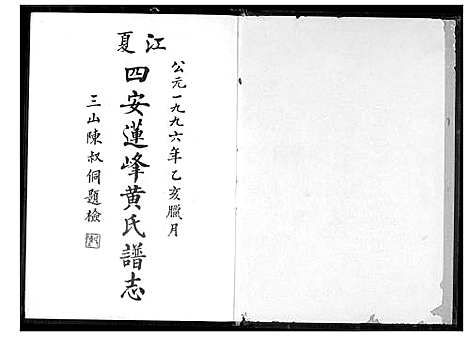 江夏
公元一九九六年乙亥臘月
四安蓮峰黄氏譜志
三山陳叔侗題檢